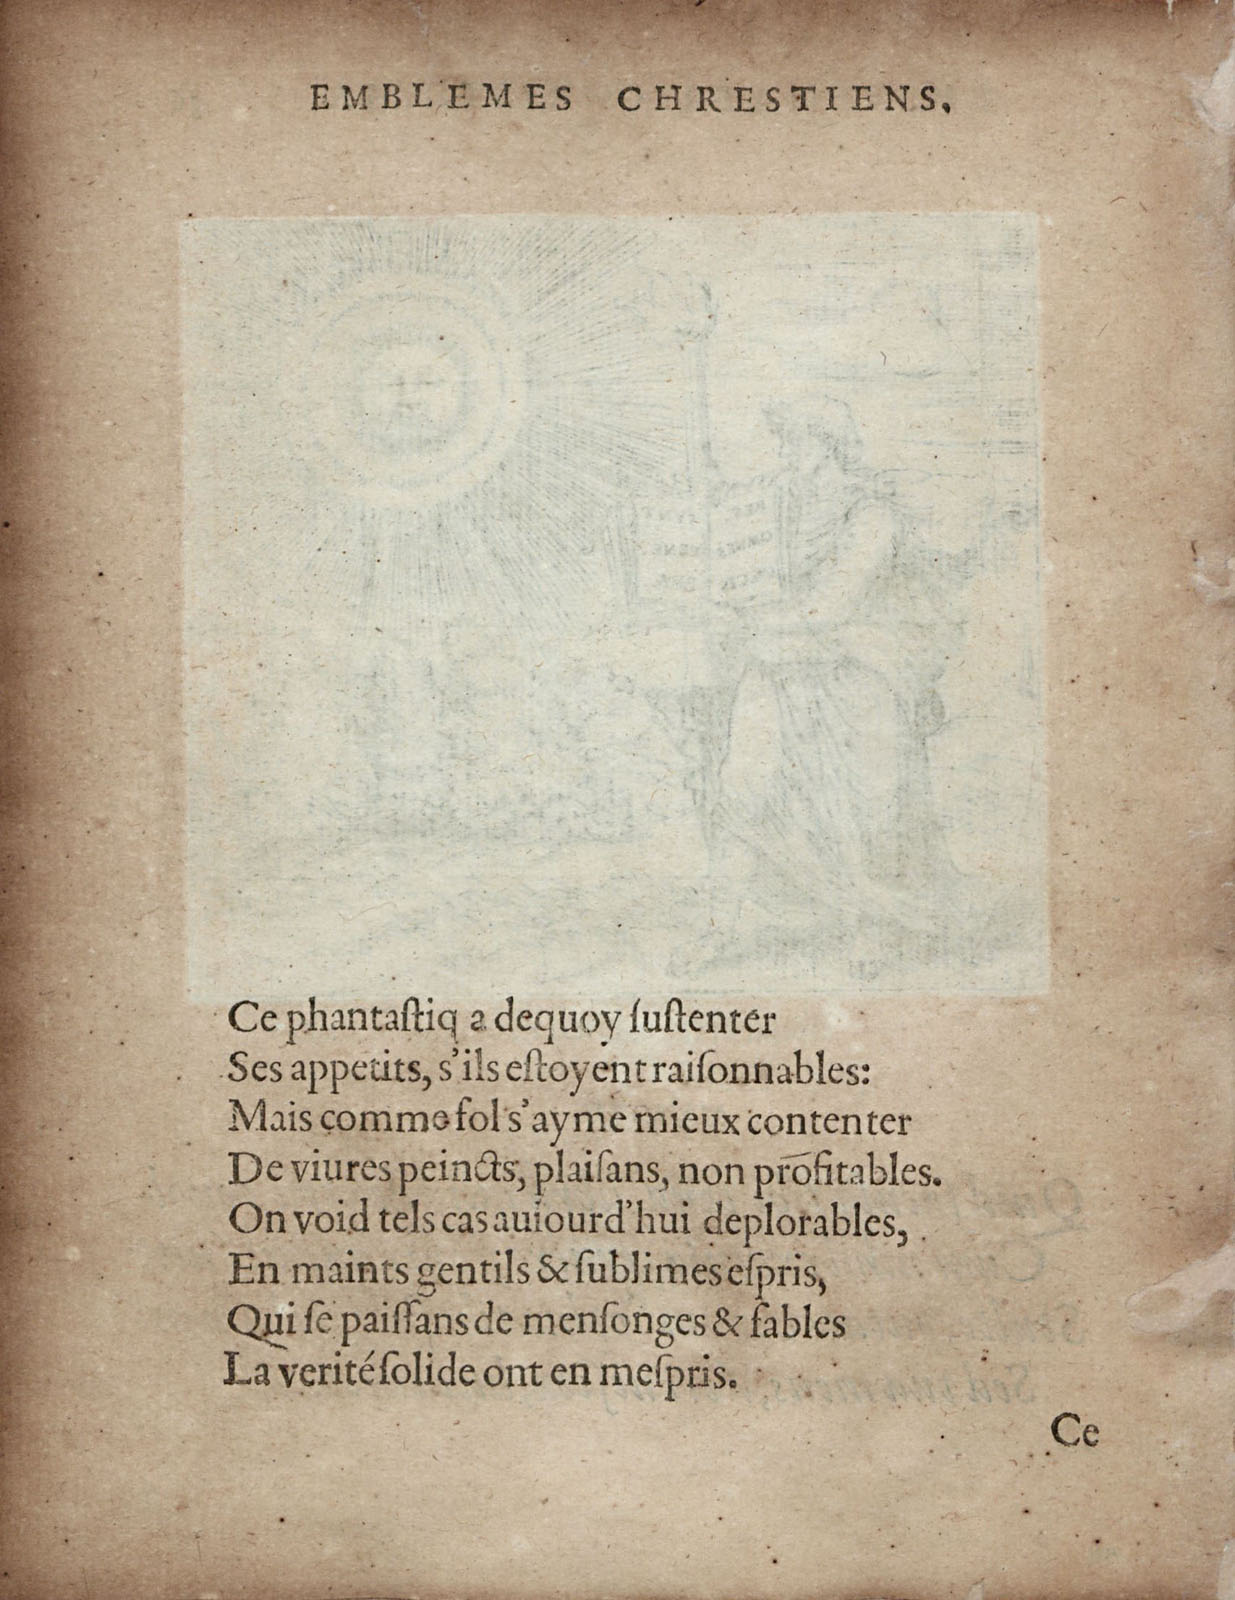 EMBLEMES CHRESTIENS.
Ce phantaſtiq a dequoy ſuſtenter
Ses appetits, s'ils eſtoyent raiſonnables:
Mais comme fol s'ayme mieux contenter
De viures peincts, plaiſans, non profitables.
On void tels cas auiourd'hui deplorables,
En maints gentils & ſublimes eſpris,
Qui ſe paiſſans de menſonges & fables
La verité ſolide ont en meſpris.
Ce